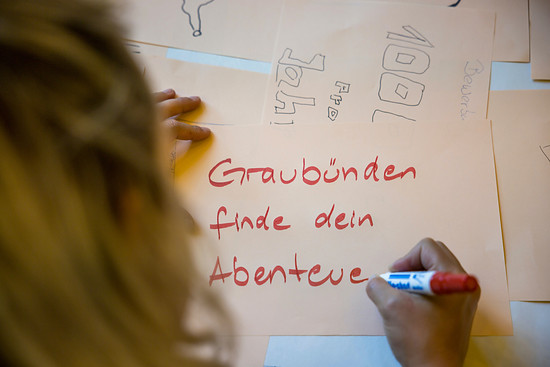 100
Pro
Jah
Graubünden
finde dein
Abenteue